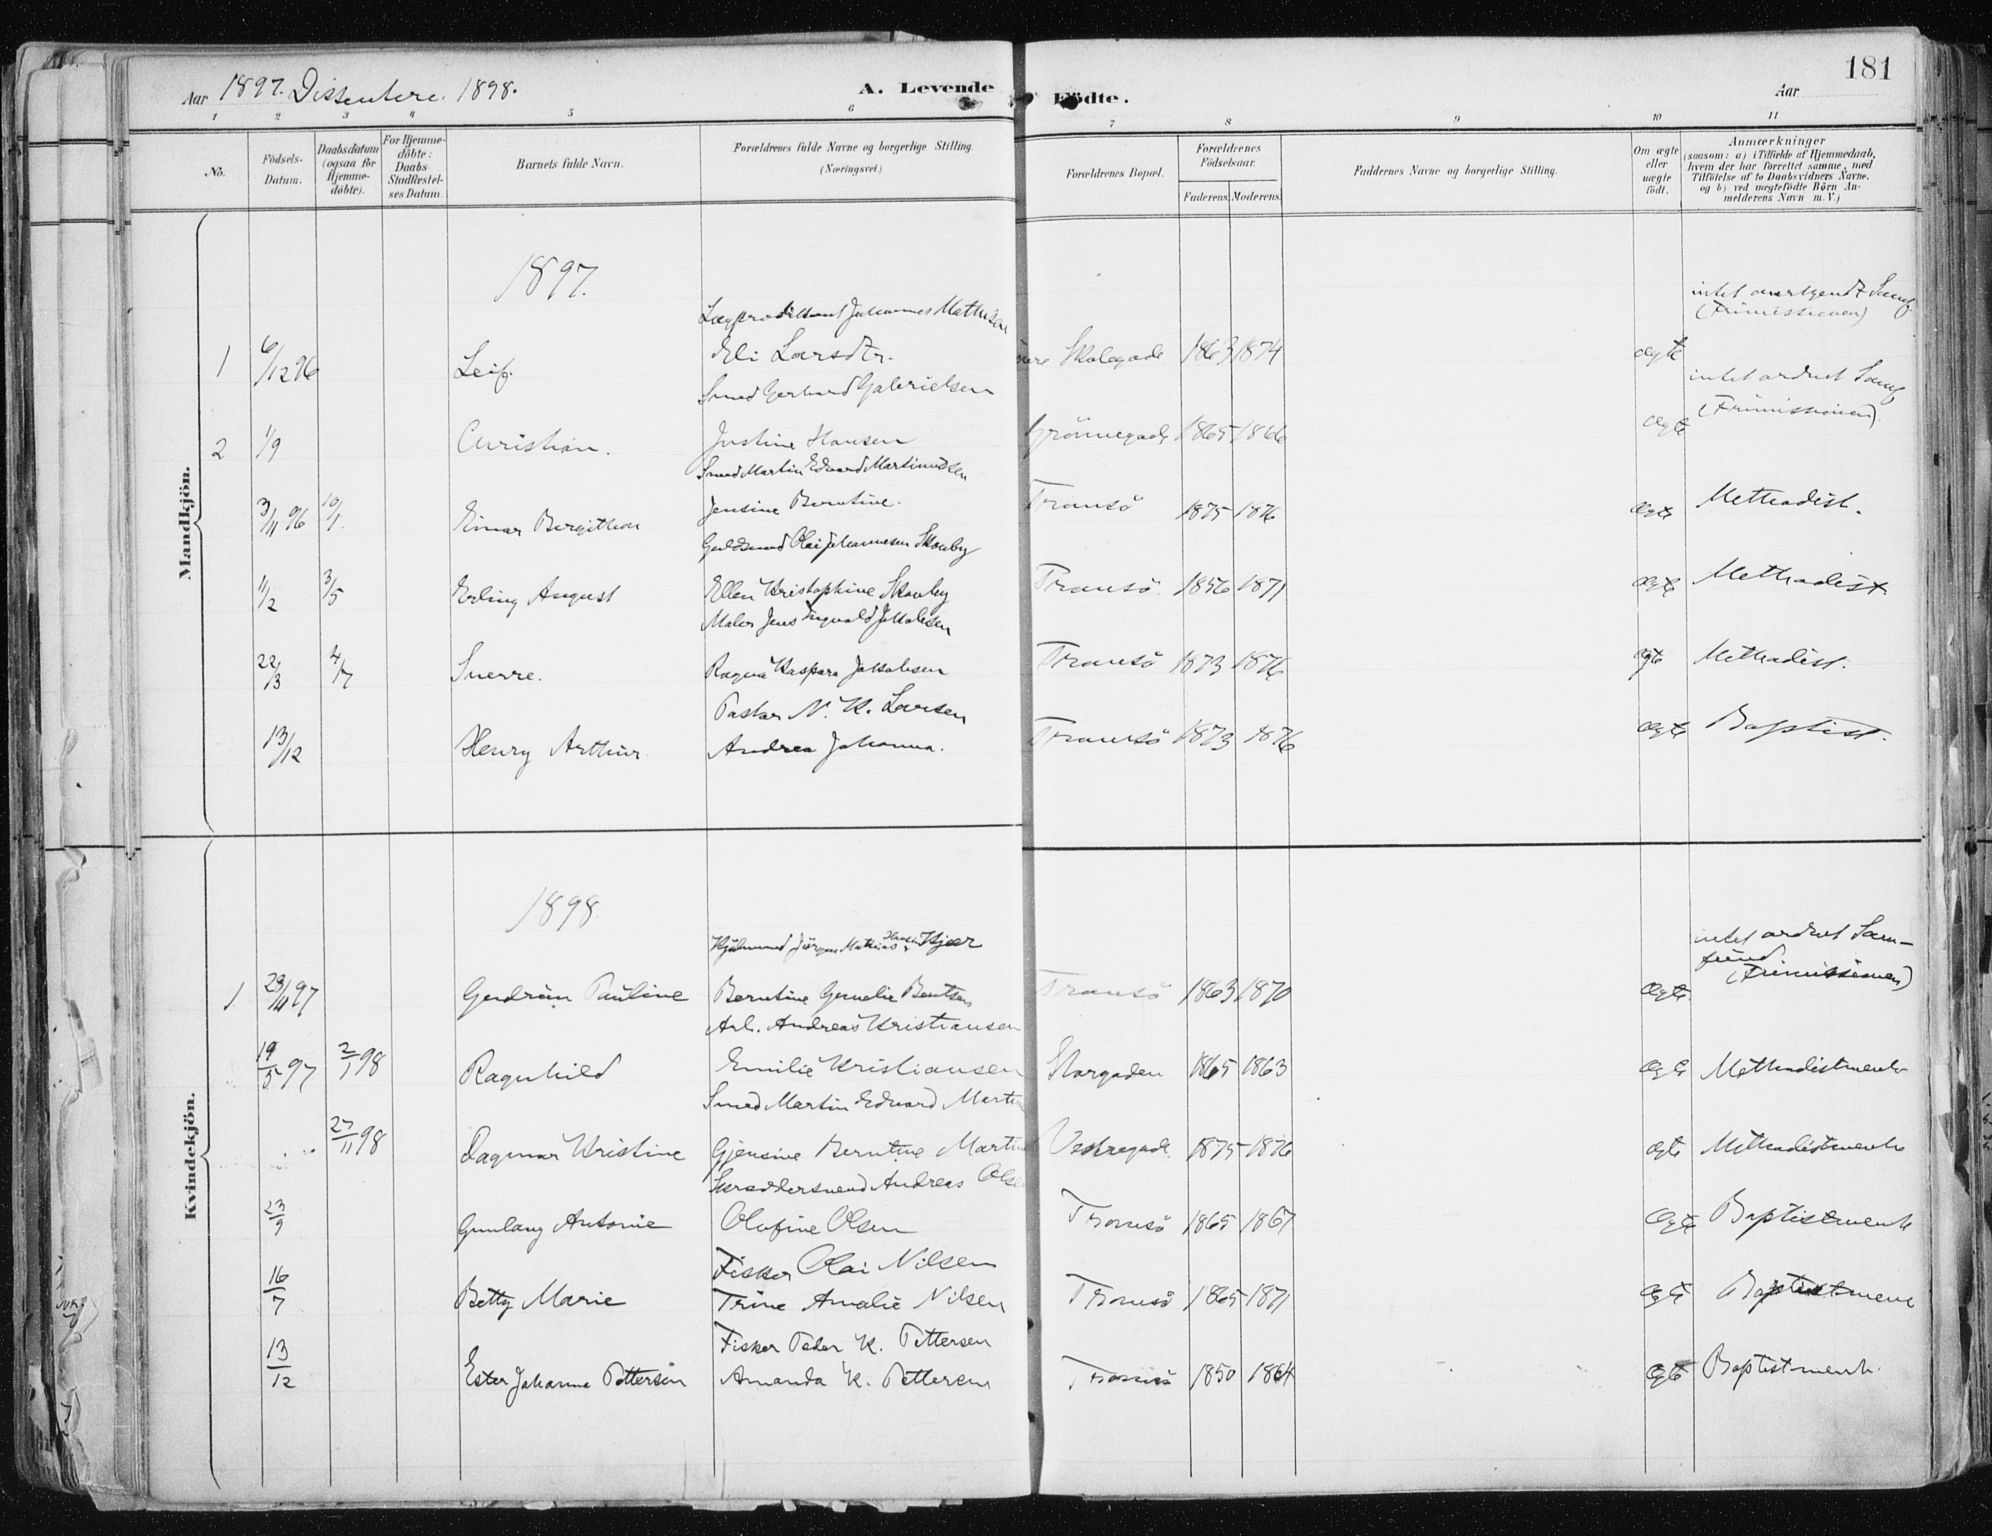 181
Aar 1897. Dissentere. 1898. A. Levende Födte. Aar
1 2 3 4 5 6 7 8 9 10 11
No.
Födsels-Datum.
Daabsdatum (ogsaa for Hjemmedöbte).
For Hjemmedöbte: Daabs-Stadfæstelses Datum.
Barnets fulde Navn.
Forældrenes fulde Navne og borgerlige Stilling.
(Næringsvei.)
Forældrenes Bopæl.
Forældrenes Födselsaar.
Faderens. Moderens.
Faddernes Navne og borgerlige Stilling.
Om ægte eller uægte födt.
Anmærkninger
(saasom: a) i Tilfælde af Hjemmedaab,
hvem der har forrettet samme, med
Tilföielse af to Daabsvidners Navne.
og b) ved uægtefödte Börn An-
melderens Navn m. V.)
Mandkjön.
1897.
Johannes Mathisen intet Samf.
(Frimissionen)
1 6/12 96 Leif. Eli Larsdtr. Skolegade 1863 1874 ægte
Smed Gerhard Gabrielsen intet ordnet Samf
(Frimissionen).
2 1/9 Christian. Justine Hansen Grönnegade 1865 1866 ægte
Smed Martin Edvard Martinussen
3/11 96 10/1. Einar Bergithon Jensine Berntine. Tromsö 1875 1876 ægte Methodist.
Guldsmed Olai Johannesen Skouby
11/2 3/5 Erling August Ellen Kristophine Skouby Tromsö. 1856 1871 ægte Methodist
Maler Jens Ingvald Jakobsen
22/3 4/7 Sverre. Ragna Kaspara Jakobsen Tromsö 1873 1876 ægte Methodist.
Pastor N. K. Larsen
13/12 Henry Arthur. Andrea Johanna. Tromsö 1873 1876 ægte Baptist.
Kvindekjön.
1898.
Jörgen Mathias Hansen Kjær intet ordnet Sam-
fund
(Frimissionen)
1 29/11 97 Gudrun Pauline Berntine Bentsen Tromsö 1863 1870 ægte.
Arb. Andreas Kristiansen
19/5 97 2/1 98 Ragnhild Emilie Kristiansen Storgaden 1865 1863 ægte Methodistmenh
Smed Martin Edvard Martin
27/11 98 Dagmar Kristine Gjensine Berntine Martin Vestregade. 1875 1876 ægte Methodistmenh
Skræddersvend Andreas Olsen
23/9 Gunlaug Antonie Olufine Olsen Tromsö 1865 1867 ægte Baptistmenh
Fisker Olai Nilsen
16/7 Betty Marie Trine Amalie Nilsen Tromsö 1865 1871 ægte Baptistmenh
Fisker Peder K. Pettersen
13/12 Ester Johanna Pettersen Amanda K. Pettersen Tromsö 1850 1864 ægte Baptistmenh.